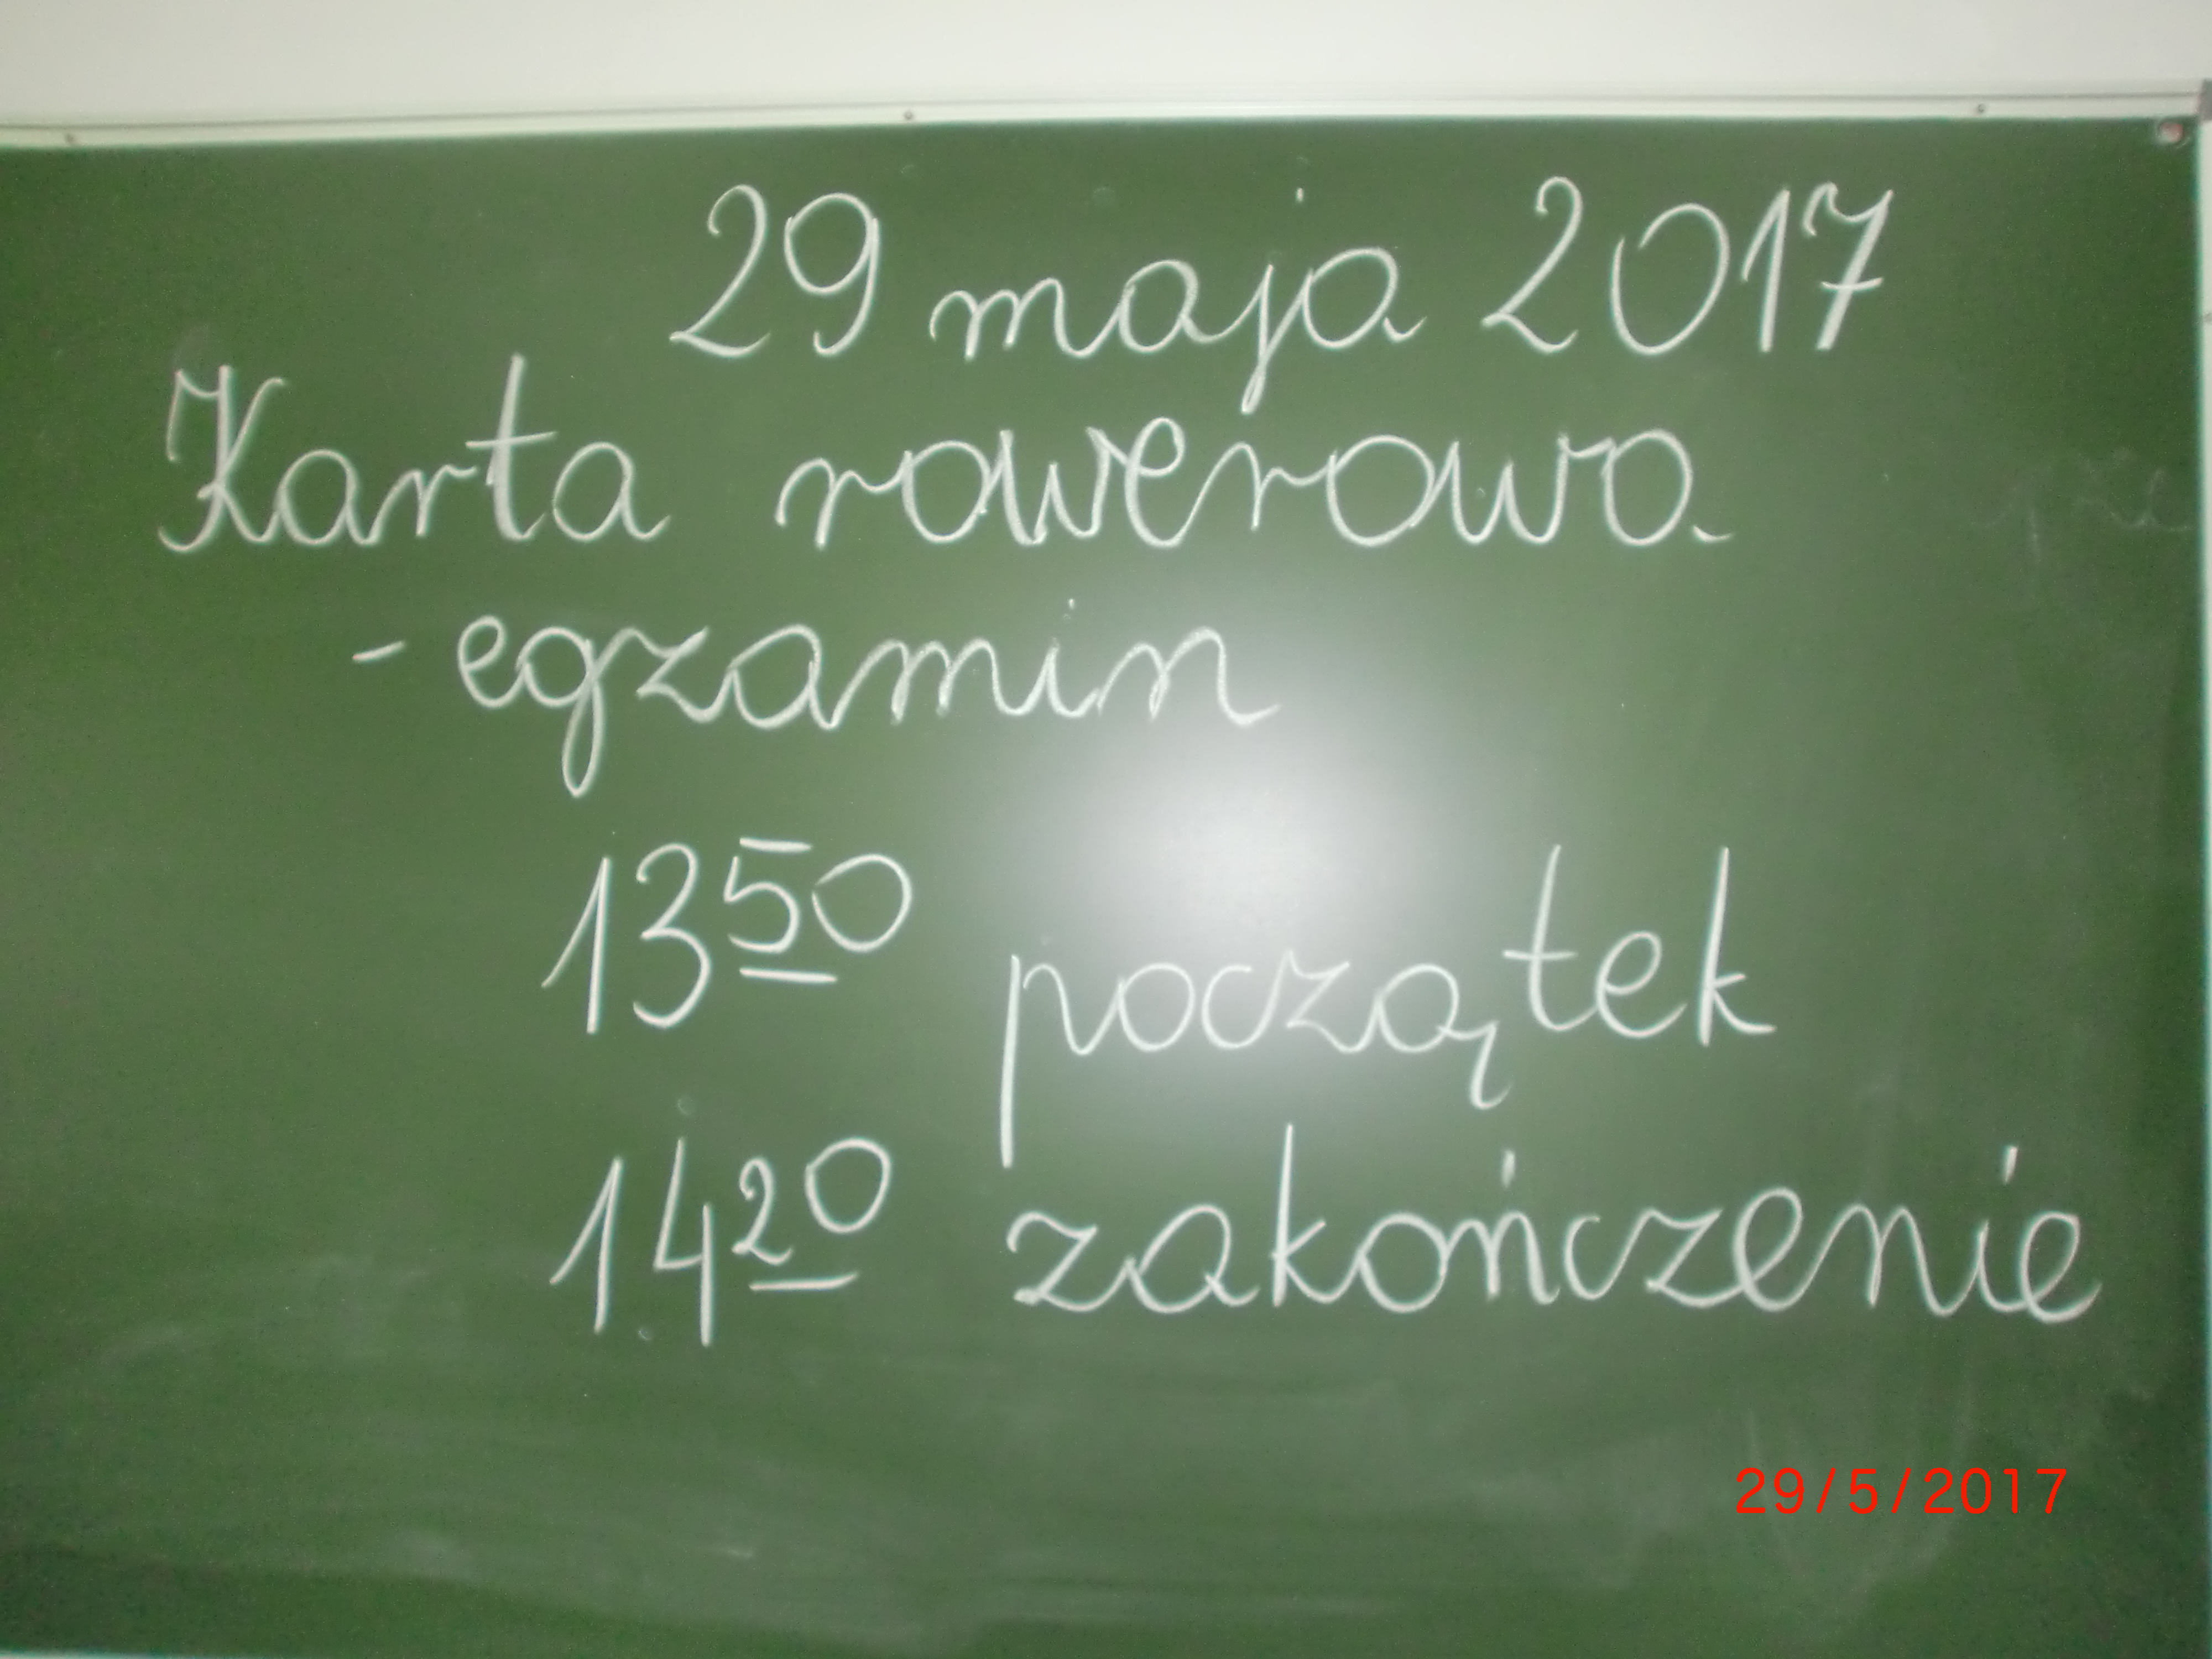 29 maja 2017
Karta rowerowa
- egzamin
13 50 początek
14 20 zakończenie
29/5/2017